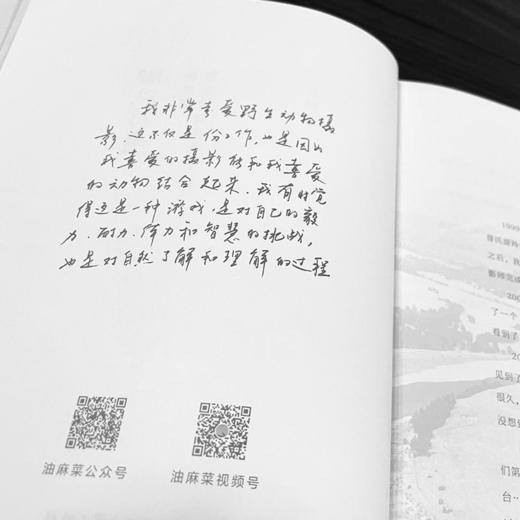 我非常喜爱野生动物摄
影，这不仅是份工作，也是因为
我喜爱的摄影能和我喜爱
的动物结合起来，我有时觉
得这是一种游戏，是对自己的毅
力、耐力、体力和智慧的挑战，
也是对自然了解和理解的过程
油麻菜公众号
油麻菜视频号
1999
之后，我
影师完成
200
了一个
看到了
20
见到了
很久，
没想
们第
台…